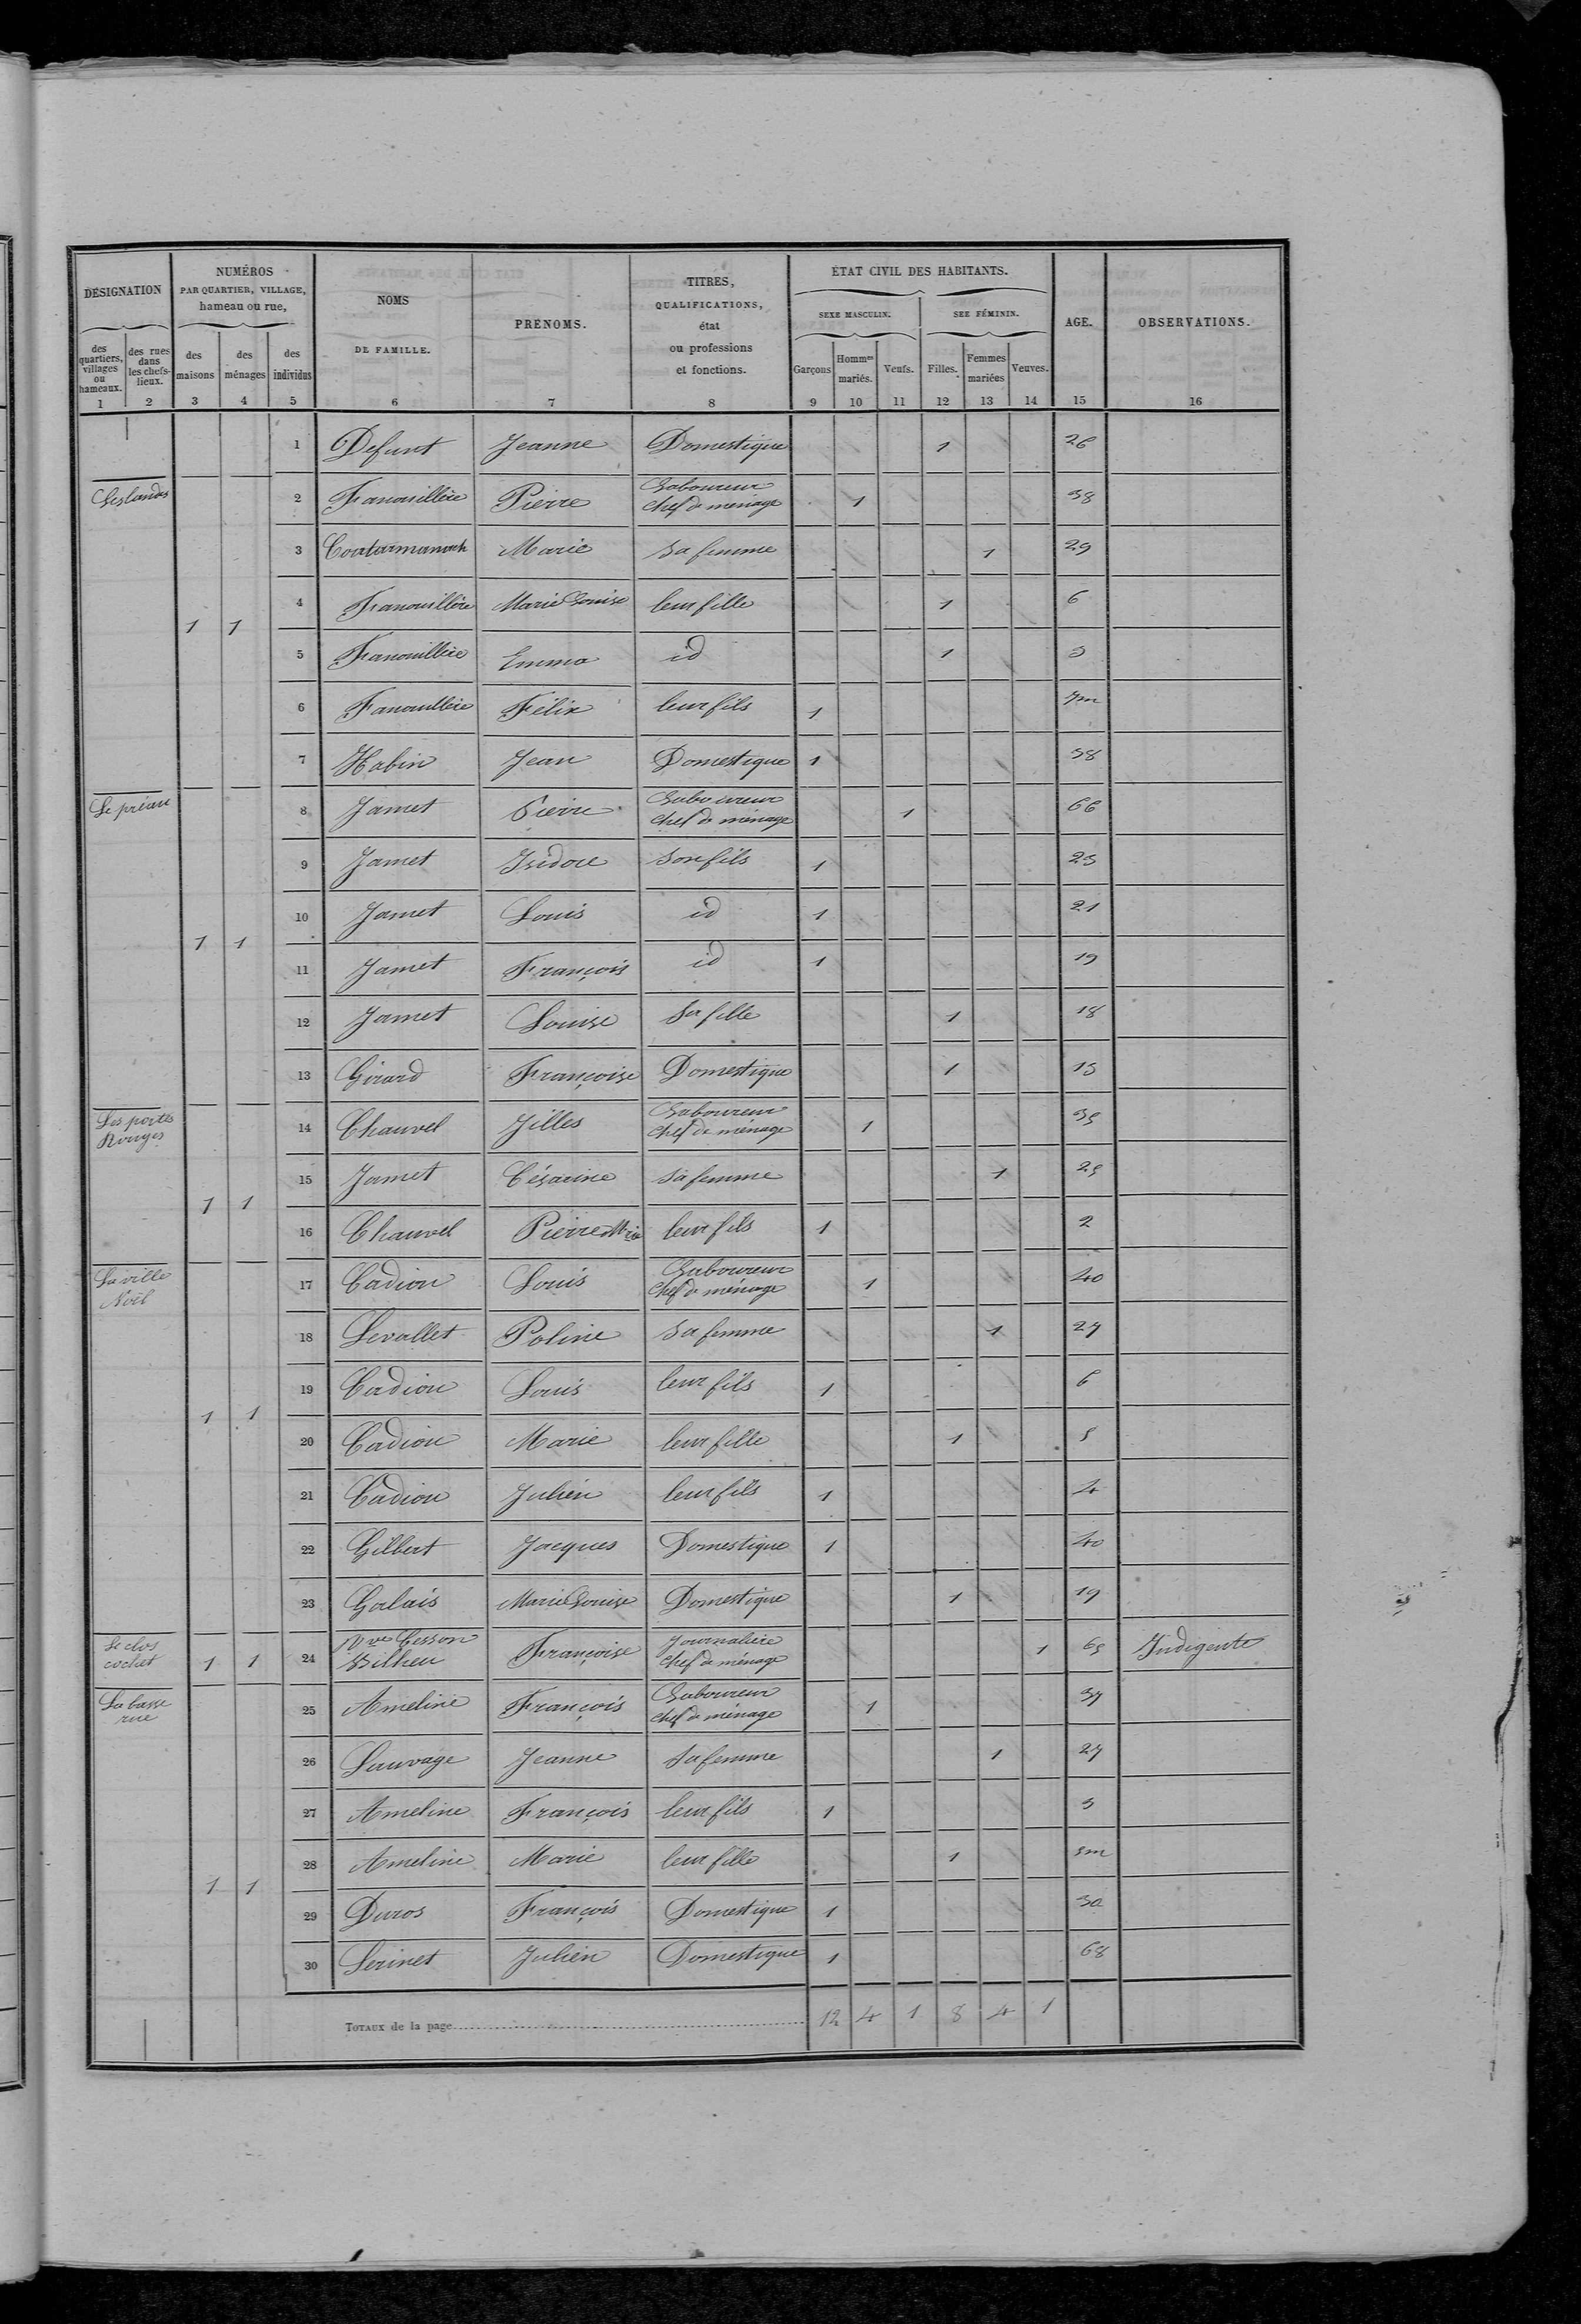 DÉSIGNATION NUMÉROS PAR QUARTIER, VILLAGE, hameau ou rue, NOMS DE FAMILLE. PRÉNOMS. TITRES, QUALIFICATIONS, état ou professions et fonctions. ÉTAT CIVIL DES HABITANTS. AGE. OBSERVATIONS.
SEXE MASCULIN. SEE FÉMININ.
des quartiers, villages ou hameaux. des rues dans les chefs-lieux. des maisons des ménages des individus Garçons Hommes mariés. Veufs. Filles. Femmes mariées Veuves.
1 2 3 4 5 6 7 8 9 10 11 12 13 14 15 16
1 Defunt Jeanne Domestique 1 26
Les landes 2 Fanouillère Pierre Laboureur chef de ménage 1 38
3 Marie Sa femme 1 29
1 1 4 Fanouillère Marie Louise leur fille 1 6
5 Fanouillère Emma id 1 3
6 Fanouillère Félix leur fils 1 7m
7 Habin Jean Domestique 1 38
Le préau 8 Jamet Pierre Laboureur chef de ménage 1 66
9 Jamet Isidore Son fils 1 23
10 Jamet Louis id 1 21
1 1 11 Jamet François id 1 19
12 Jamet Louise Sa fille 1 18
13 Girard Françoise Domestique 1 13
Les portes Rouges 14 Chauvel Gilles Laboureur chef de ménage 1 35
1 1 15 Jamet Césarine Sa femme 1 25
16 Chauvel Pierre Mrie leur fils 1 2
La ville Noël 17 Cadiou Louis Laboureur chef de ménage 1 40
18 Levallet Poline Sa femme 1 27
1 1 19 Cadiou Louis leur fils 1 6
20 Cadiou Marie leur fille 1 5
21 Cadiou Julien leur fils 1 4
22 Gilbert Jacques Domestique 1 40
23 Galais Marie Louise Domestique 1 19
Le clos cochet 1 1 24 Vve Cesson Françoise Journalière chef de ménage 1 65 Indigente
La basse rue 25 Ameline François Laboureur chef de ménage 1 37
26 Sauvage Jeanne Sa femme 1 27
27 Ameline François leur fils 1 3
1 1 28 Ameline Marie leur fille 1 5m
29 Duros François Domestique 1 30
30 Serinet Julien Domestique 1 68
TOTAUX de la page 12 4 1 8 4 1